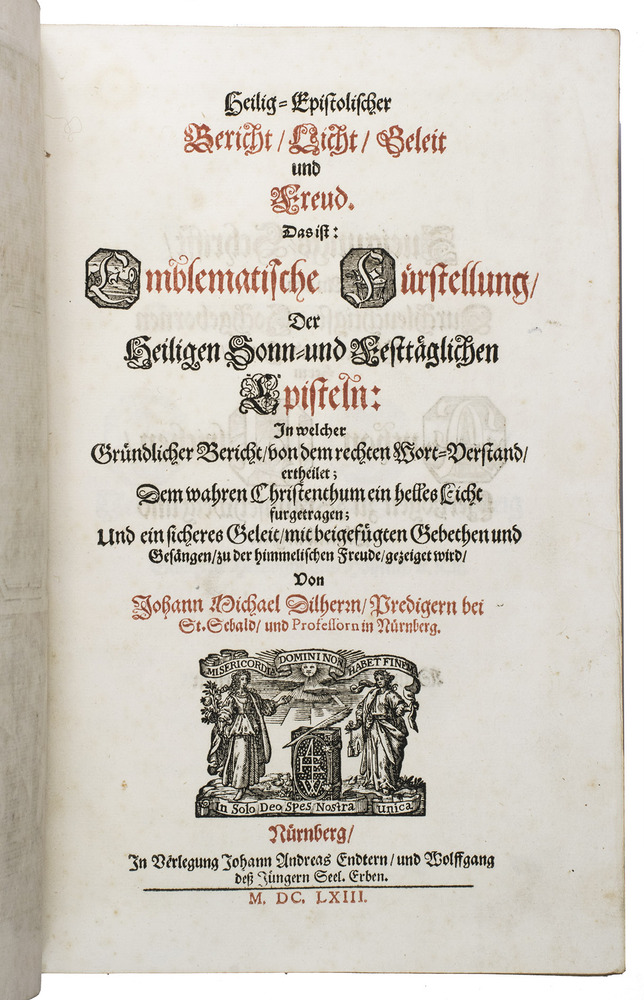 Heilig-Epistolischer
Bericht/ Licht/ Geleit
und
Freud.
Das ist:
Emblematische Fürstellung/
Der
Heiligen Sonn-und Festtäglichen
Episteln:
In welcher
Gründlicher Bericht/von dem rechten Wort-Verstand/
ertheilet;
Dem wahren Christenthum ein helles Licht
furgetragen;
Und ein sicheres Geleit/mit beigefügten Gebethen und
Gesängen/zu der himmelischen Freude/gezeiget wird/
Von
Johann Michael Dilherrn/Predigern bei
St. Sebald/ und Professorn in Nürnberg.
MISERICORDIA DOMINI NON HABET FINEM
In Solo Deo Spes Nostra Unica
Nürnberg/
In Verlegung Johann Andreas Endtern/und Wolffgang
deß Jüngern Seel. Erben.
M. DC. LXIII.